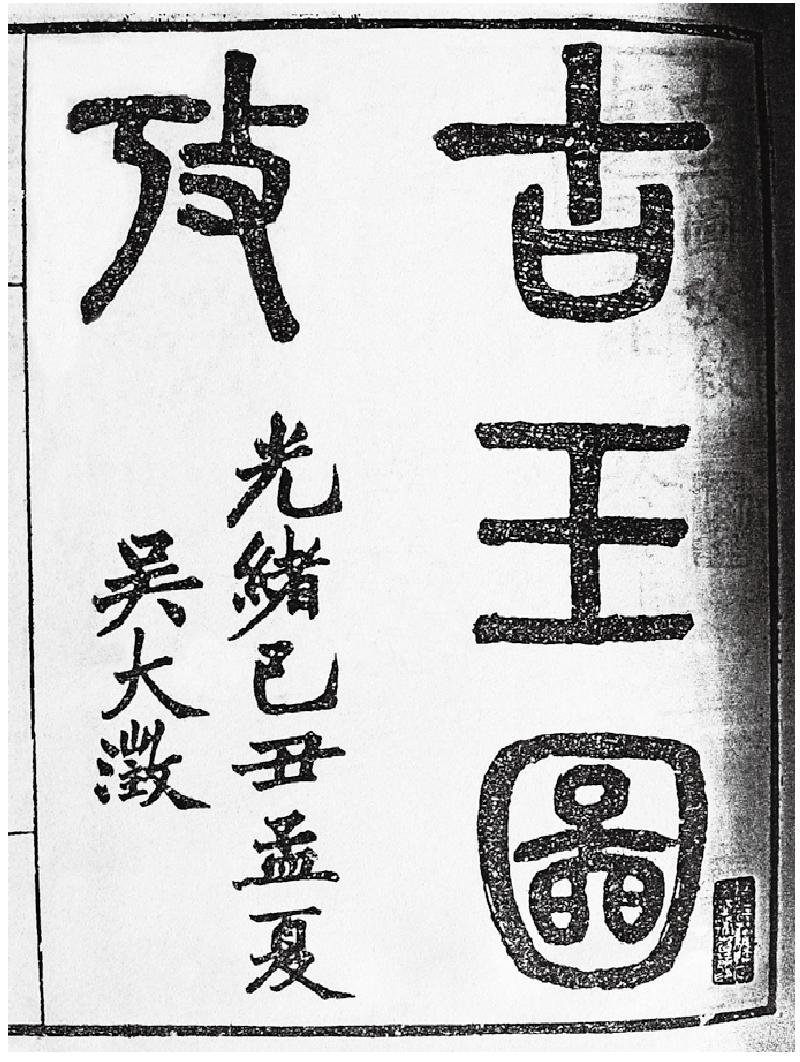 古玉圖
攷
光緒己丑孟夏
吳大澂